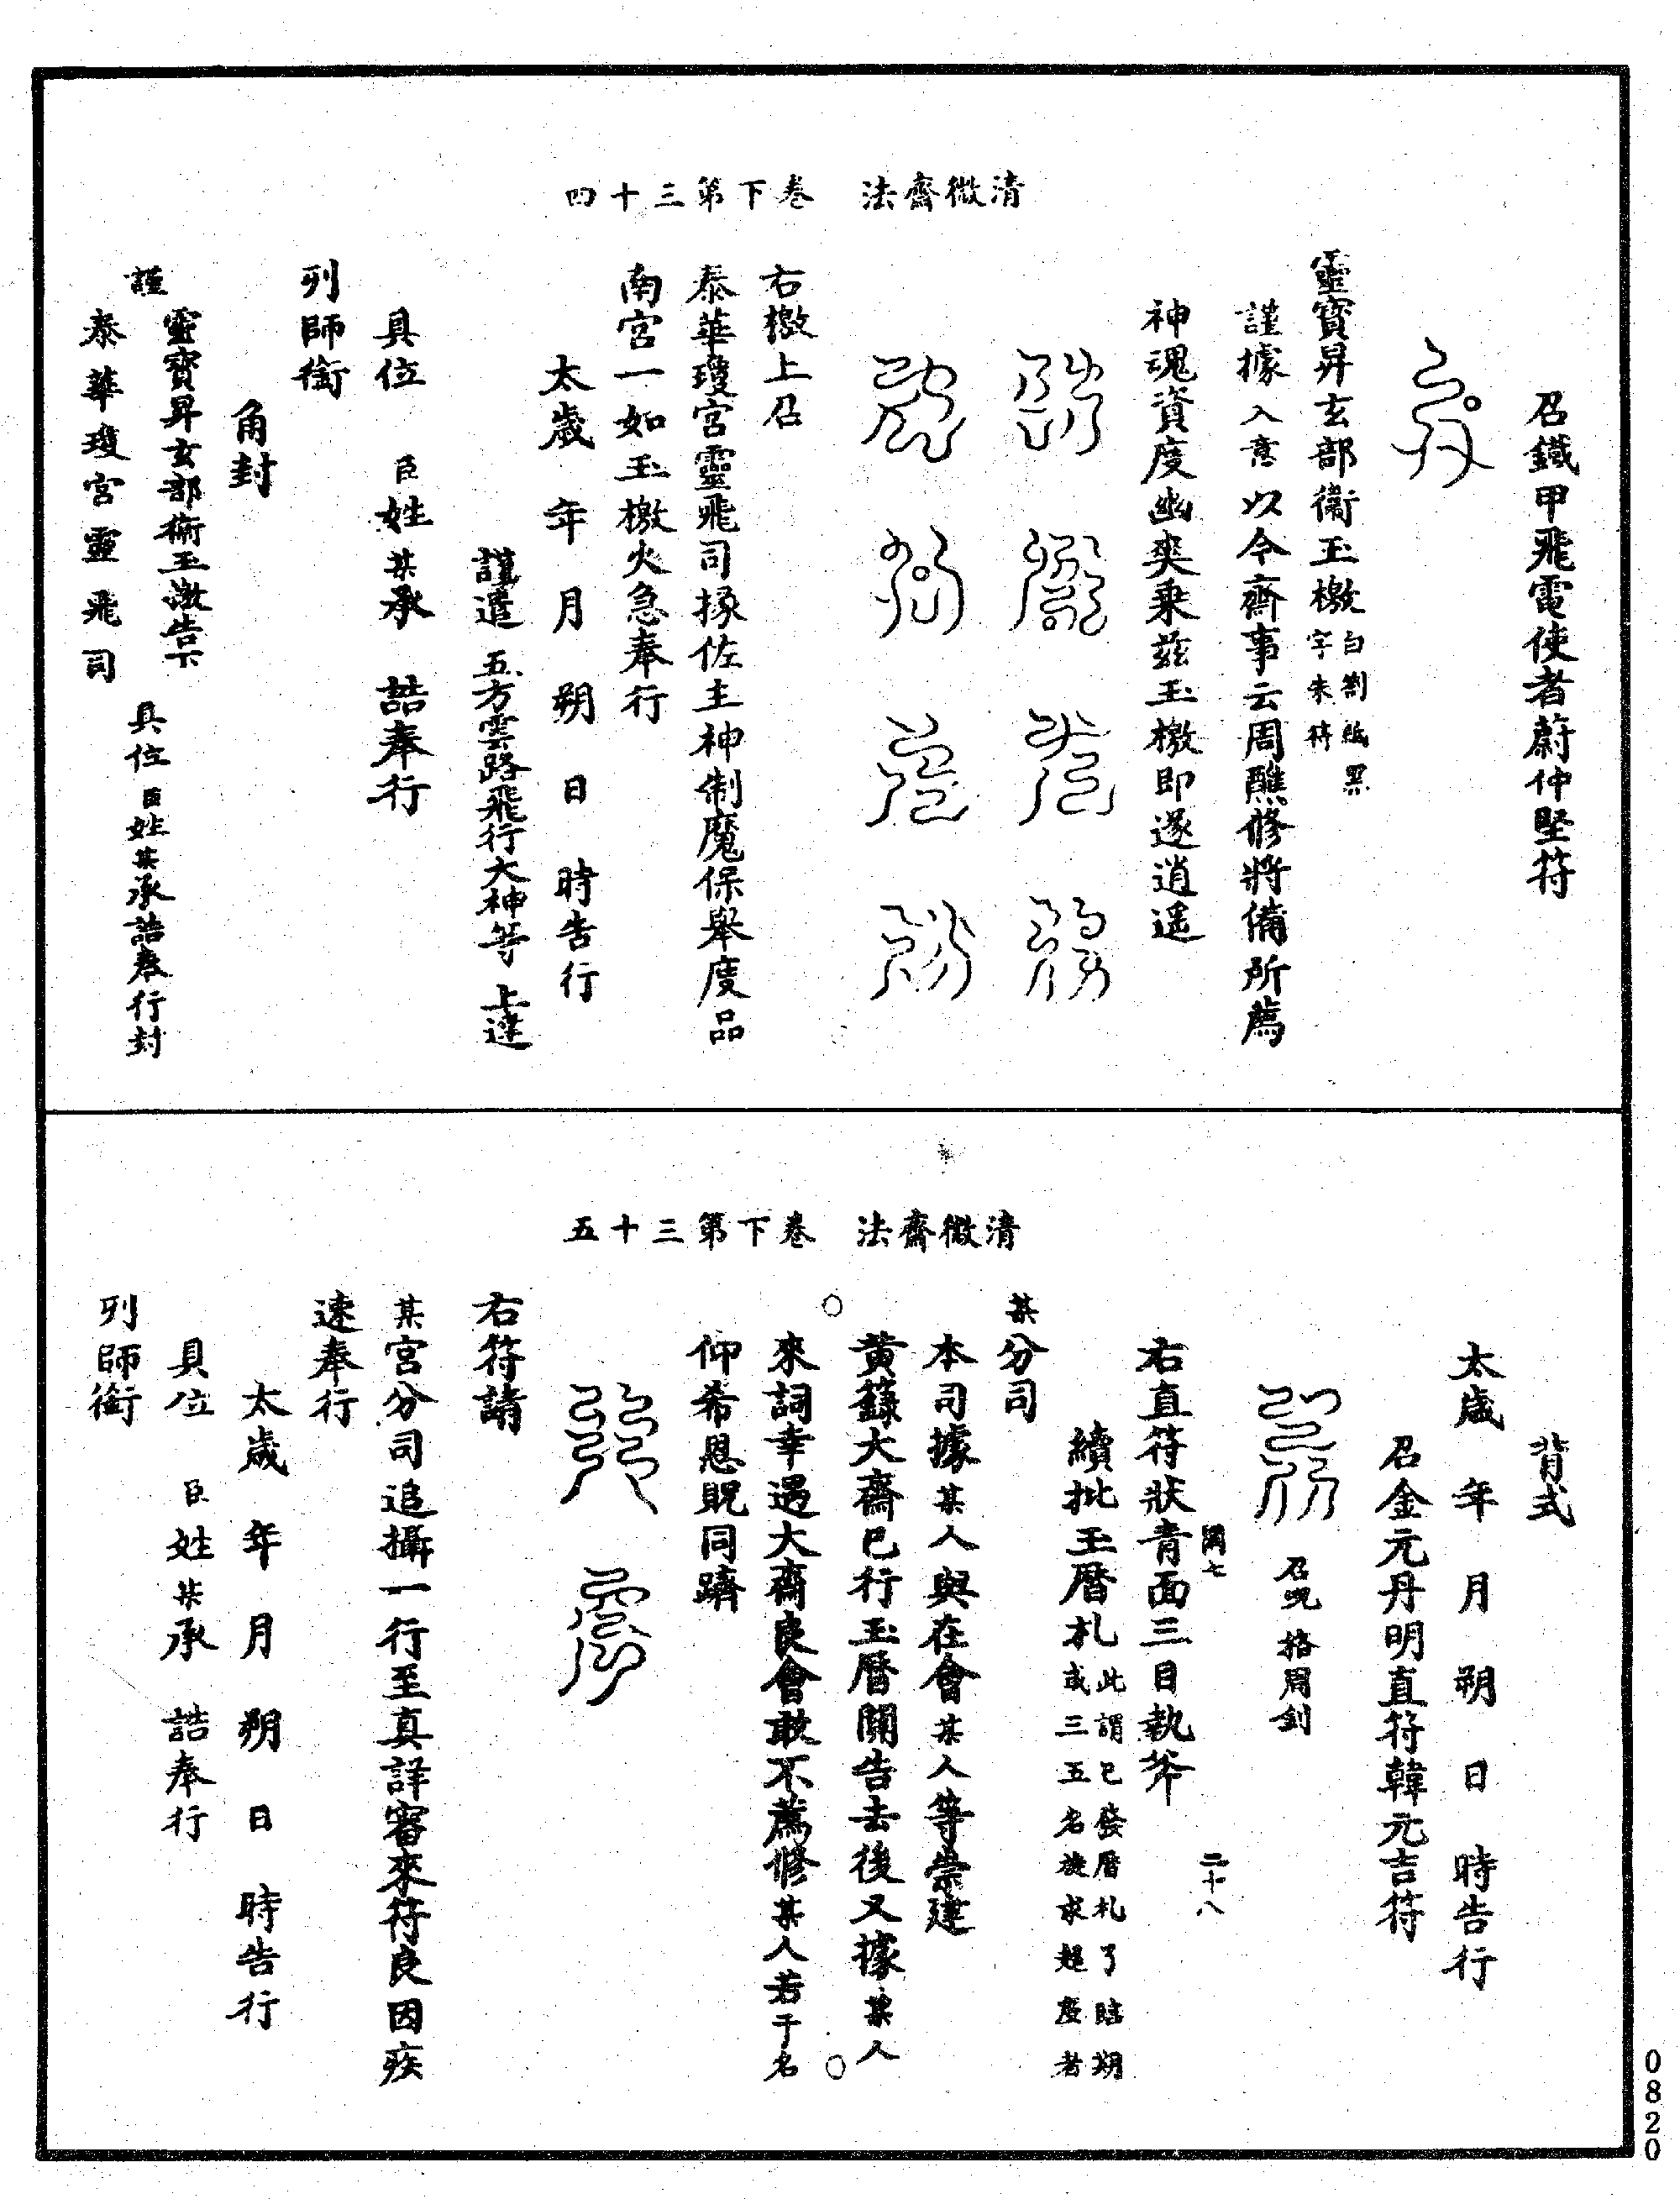 清微齋法　卷下第三十四
召鐵甲飛電使者蔚仲堅符
靈寶昇玄部衛玉檄白劄紙黑字朱符
謹據入意以今齋事云周醮修將備所薦
神魂資度幽爽乘茲玉檄即遂逍遥
右檄上召
泰華瓊宮靈飛司掾佐主神制魔保舉度品
南宮一如玉檄火急奉行
太歲　年　月　朔　日　時告行
謹遣　五方雲路飛行大神等　上達
具位　臣姓某承　誥奉行
列師銜
角封
謹
靈寶昇玄部衛玉檄告下
泰華瓊宮靈飛司
具位　臣姓某承誥奉行封
清微齋法　卷下第三十五
背式
太歲　年　月　朔　日　時告行
召金元丹明直符韓元吉符
召呪　掐周剑
二十八
右直符狀青面三目執斧
續批玉曆札此謂已發曆札了臨期或三五名旋求超度者
某分司
本司據某人與在會某人等崇建
黃籙大齋已行玉曆關告去後又據某人
來詞幸遇大齋良會敢不薦修某人若干名
仰希恩貺同躋
右符請
某宮分司追攝一行至真詳審來符良因疾
速奉行
太歲　年　月　朔　日　時告行
具位　臣姓某承　誥奉行
列師銜
0820